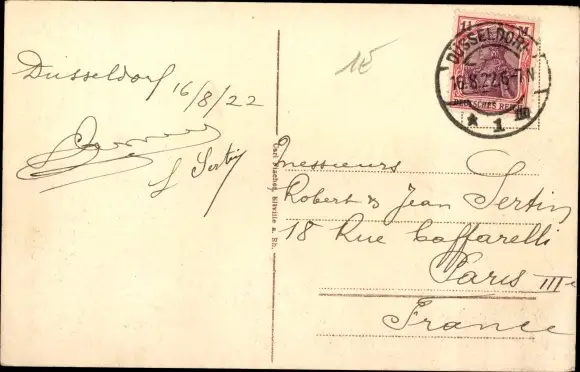 Dusseldorf 16/8/22
f Sertin
1E
1¼ M
DÜSSELDORF
16.8.22.6-7N
DEUTSCHES REICH
* 1 m
Carl Blaches, Eltville a. Rh.
Messieurs
Robert & Jean Sertin
18 Rue Caffarelli
Paris IIIe
France